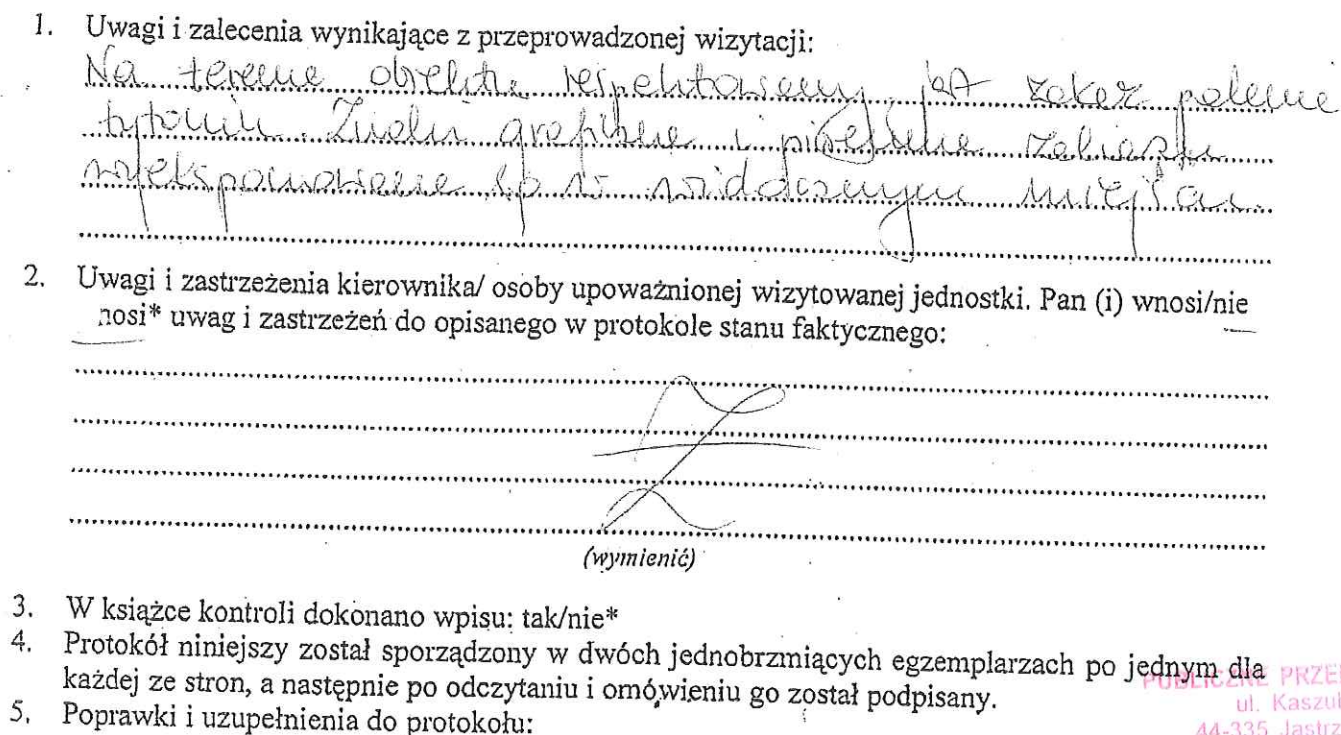 1. Uwagi i zalecenia wynikające z przeprowadzonej wizytacji:
Na terenie obiektu respektowany jest zakaz palenia
tytoniu. Znaki graficzne i zakazu
wyeksponowane są w widocznym miejscu.
2. Uwagi i zastrzeżenia kierownika/ osoby upoważnionej wizytowanej jednostki. Pan (i) wnosi/nie
nosi* uwag i zastrzeżeń do opisanego w protokole stanu faktycznego:
(wymienić)
3. W książce kontroli dokonano wpisu: tak/nie*
4. Protokół niniejszy został sporządzony w dwóch jednobrzmiących egzemplarzach po jednym dla
każdej ze stron, a następnie po odczytaniu i omówieniu go został podpisany.
5. Poprawki i uzupełnienia do protokołu:
PUBLICZNE PRZE
ul. Kaszu
44-335 Jastrz